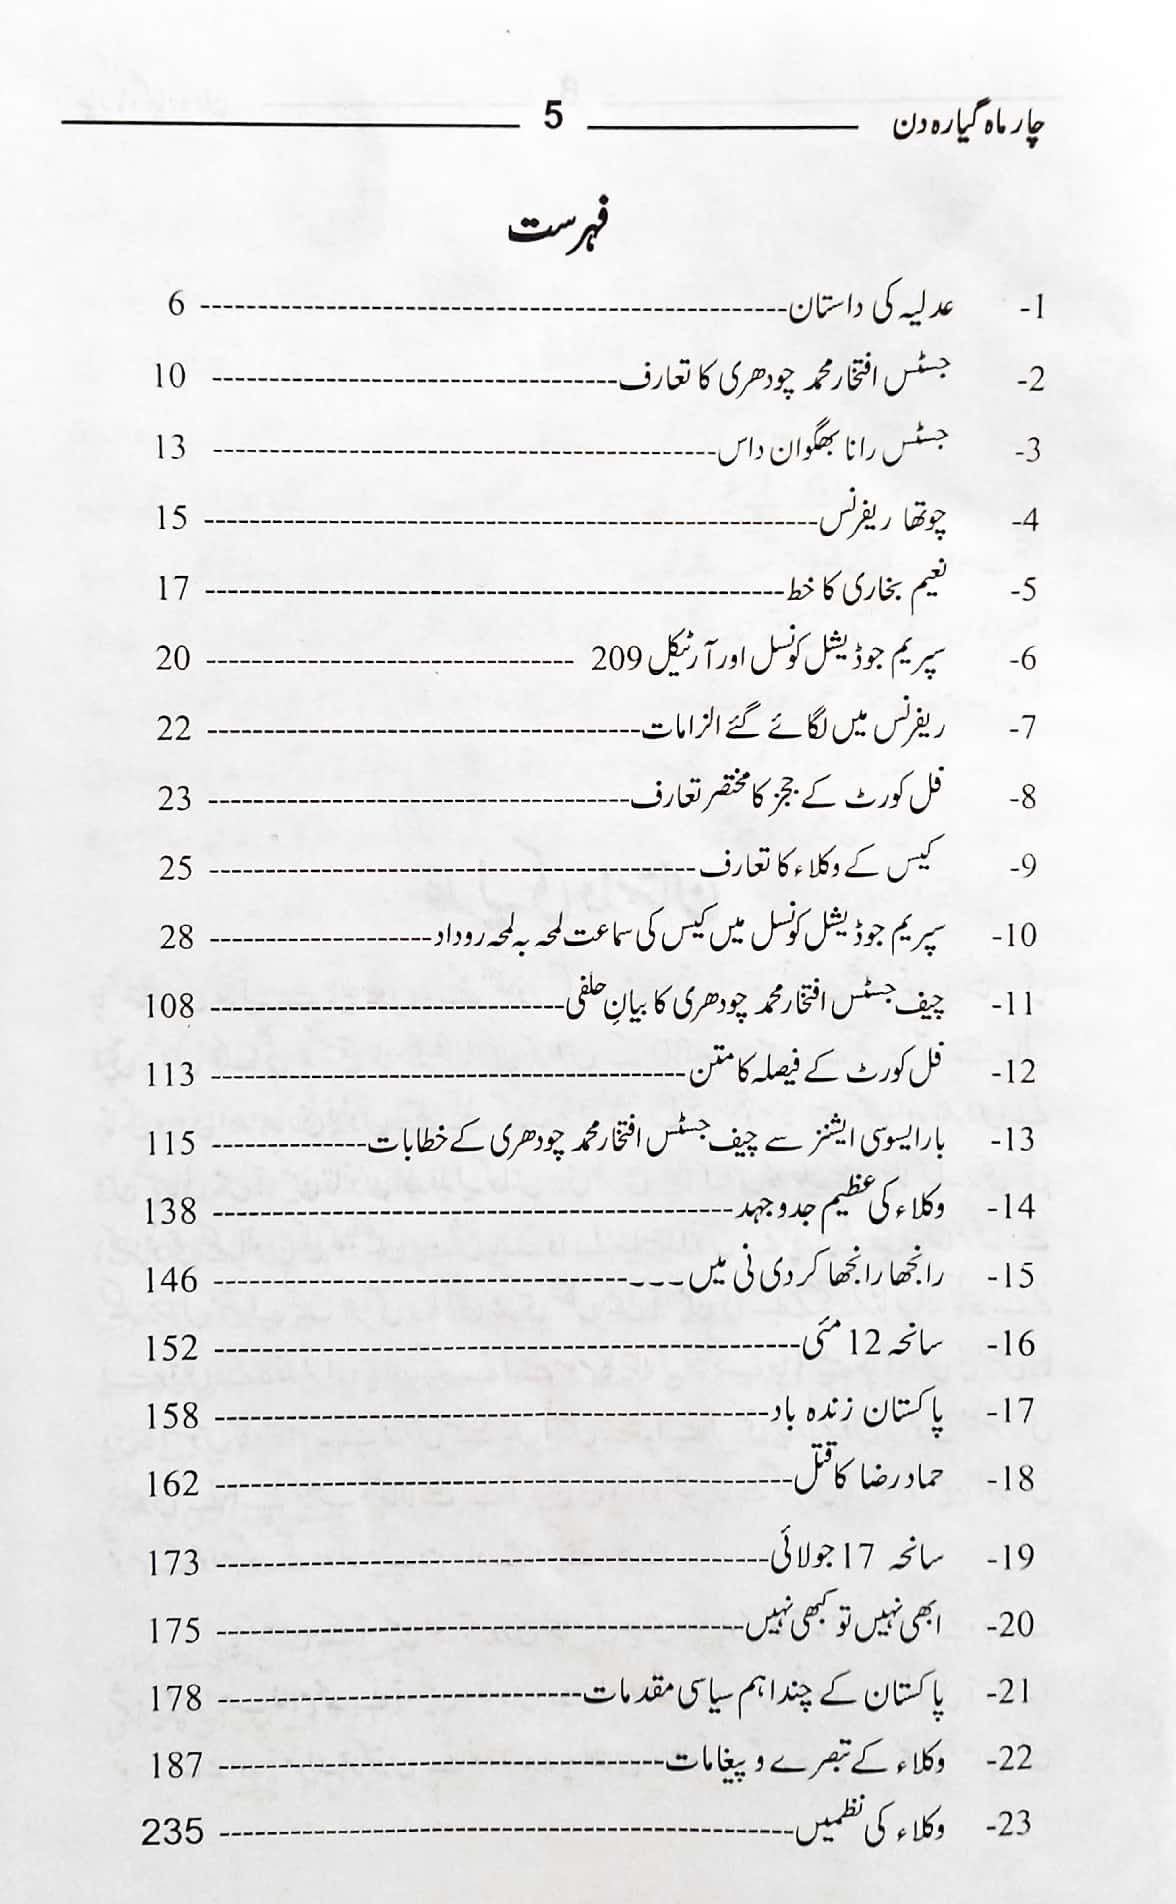 چار ماہ گیارہ دن 5
فہرست
1- عدلیہ کی داستان 6
2- جسٹس افتخار محمد چودھری کا تعارف 10
3- جسٹس رانا بھگوان داس 13
4- چوتھا ریفرنس 15
5- نعیم بخاری کا خط 17
6- سپریم جوڈیشل کونسل اور آرٹیکل 209 20
7- ریفرنس میں لگائے گئے الزامات 22
8- فل کورٹ کے ججز کا مختصر تعارف 23
9- کیس کے وکلاء کا تعارف 25
10- سپریم جوڈیشل کونسل میں کیس کی سماعت لمحہ بہ لمحہ روداد 28
11- چیف جسٹس افتخار محمد چودھری کا بیانِ حلفی 108
12- فل کورٹ کے فیصلہ کا متن 113
13- بار ایسوسی ایشنز سے چیف جسٹس افتخار محمد چودھری کے خطابات 115
14- وکلاء کی عظیم جدوجہد 138
15- رانجھا رانجھا کر دی نی میں۔۔۔ 146
16- سانحہ 12 مئی 152
17- پاکستان زندہ باد 158
18- حماد رضا کا قتل 162
19- سانحہ 17 جولائی 173
20- ابھی نہیں تو کبھی نہیں 175
21- پاکستان کے چند اہم سیاسی مقدمات 178
22- وکلاء کے تبصرے و پیغامات 187
23- وکلاء کی نظمیں 235